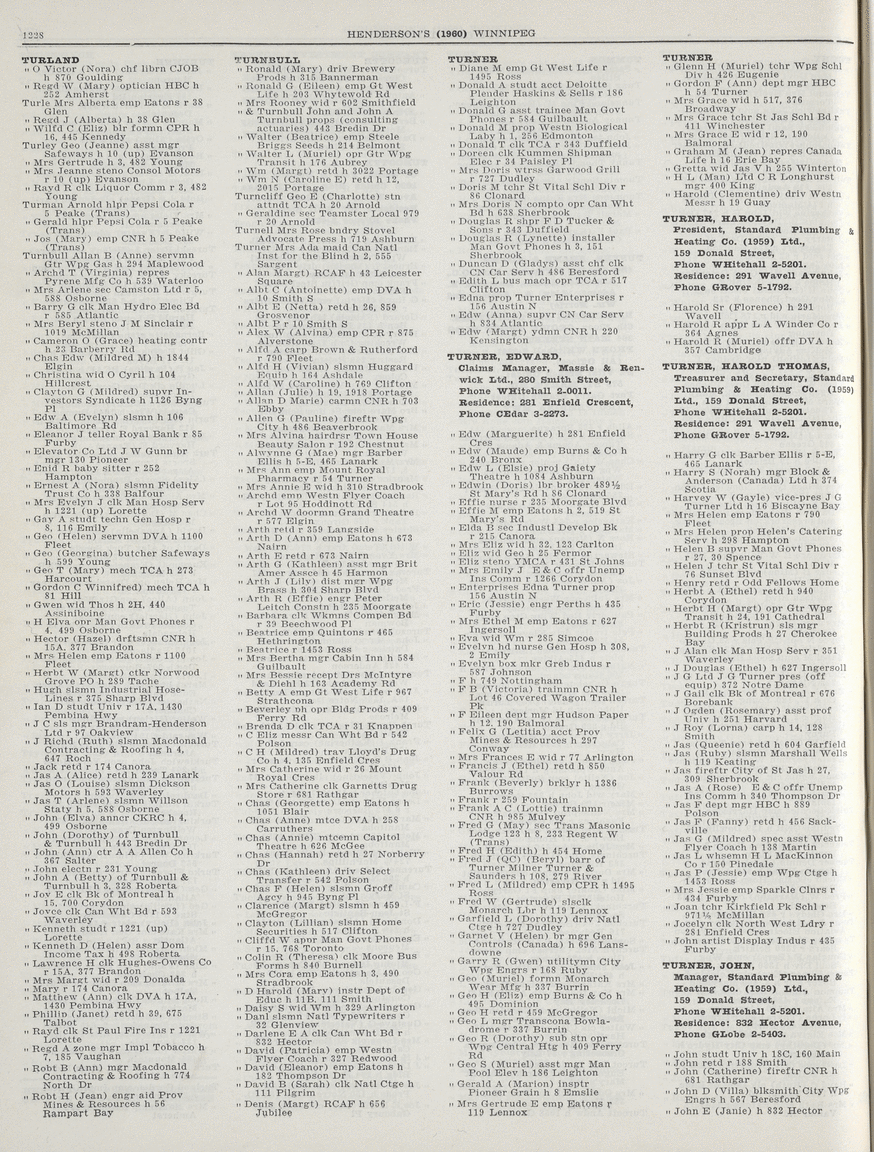 1228
HENDERSON'S (1960) WINNIPEG
TURLAND
" O Victor (Nora) chf librn CJOB
h 870 Goulding
" Regd W (Mary) optician HBC h
252 Amherst
Turle Mrs Alberta emp Eatons r 38
Glen
" Regd J (Alberta) h 38 Glen
" Wilfd C (Eliz) blr formn CPR h
16, 445 Kennedy
Turley Geo (Jeanne) asst mgr
Safeways h 10 (up) Evanson
" Mrs Gertrude h 3, 482 Young
" Mrs Jeanne steno Consol Motors
r 10 (up) Evanson
" Rayd R clk Liquor Comm r 3, 482
Young
Turman Arnold hlpr Pepsi Cola r
5 Peake (Trans)
" Gerald hlpr Pepsi Cola r 5 Peake
(Trans)
" Jos (Mary) emp CNR h 5 Peake
(Trans)
Turnbull Allan B (Anne) servmn
Gtr Wpg Gas h 294 Maplewood
" Archd T (Virginia) repres
Pyrene Mfg Co h 539 Waterloo
" Mrs Arlene sec Camston Ltd r 5,
588 Osborne
" Barry G clk Man Hydro Elec Bd
r 585 Atlantic
" Mrs Beryl steno J M Sinclair r
1019 McMillan
" Cameron O (Grace) heating contr
h 23 Barberry Rd
" Chas Edw (Mildred M) h 1844
Elgin
" Christina wid O Cyril h 104
Hillcrest
" Clayton G (Mildred) supvr In-
vestors Syndicate h 1126 Byng
Pl
" Edw A (Evelyn) slsmn h 106
Baltimore Rd
" Eleanor J teller Royal Bank r 85
Furby
" Elevator Co Ltd J W Gunn br
mgr 130 Pioneer
" Enid R baby sitter r 252
Hampton
" Ernest A (Nora) slsmn Fidelity
Trust Co h 338 Balfour
" Mrs Evelyn J clk Man Hosp Serv
h 1221 (up) Lorette
" Gay A studt techn Gen Hosp r
8, 116 Emily
" Geo (Helen) servmn DVA h 1100
Fleet
" Geo (Georgina) butcher Safeways
h 599 Young
" Geo T (Mary) mech TCA h 273
Harcourt
" Gordon C Winnifred) mech TCA h
81 Hill
" Gwen wid Thos h 2H, 440
Assiniboine
" H Elva opr Man Govt Phones r
4, 499 Osborne
" Hector (Hazel) drftsmn CNR h
15A, 377 Brandon
" Mrs Helen emp Eatons r 1100
Fleet
" Herbt W (Margt) ctkr Norwood
Grove PO h 289 Tache
" Hugh slsmn Industrial Hose-
Lines r 375 Sharp Blvd
" Ian D studt Univ r 17A, 1430
Pembina Hwy
" J C sls mgr Brandram-Henderson
Ltd r 97 Oakview
" J Richd (Ruth) slsmn Macdonald
Contracting & Roofing h 4,
647 Roch
" Jack retd r 174 Canora
" Jas A (Alice) retd h 239 Lanark
" Jas O (Louise) slsmn Dickson
Motors h 593 Waverley
" Jas T (Arlene) slsmn Willson
Staty h 5, 588 Osborne
" John (Elva) anncr CKRC h 4,
499 Osborne
" John (Dorothy) of Turnbull
& Turnbull h 443 Bredin Dr
" John (Ann) ctr A A Allen Co h
367 Salter
" John electn r 231 Young
" John A (Betty) of Turnbull &
Turnbull h 3, 328 Roberta
" Joy E clk Bk of Montreal h
15, 700 Corydon
" Joyce clk Can Wht Bd r 593
Waverley
" Kenneth studt r 1221 (up)
Lorette
" Kenneth D (Helen) assr Dom
Income Tax h 498 Roberta
" Lawrence H clk Hughes-Owens Co
r 15A, 377 Brandon
" Mrs Margt wid r 209 Donalda
" Mary r 174 Canora
" Matthew (Ann) clk DVA h 17A,
1430 Pembina Hwy
" Phillip (Janet) retd h 39, 675
Talbot
" Rayd clk St Paul Fire Ins r 1221
Lorette
" Regd A zone mgr Impl Tobacco h
7, 185 Vaughan
" Robt B (Ann) mgr Macdonald
Contracting & Roofing h 774
North Dr
" Robt H (Jean) engr aid Prov
Mines & Resources h 56
Rampart Bay
TURNBULL
" Ronald (Mary) driv Brewery
Prods h 315 Bannerman
" Ronald G (Eileen) emp Gt West
Life h 203 Whytewold Rd
" Mrs Rooney wid r 602 Smithfield
" & Turnbull John and John A
Turnbull props (consulting
actuaries) 443 Bredin Dr
" Walter (Beatrice) emp Steele
Briggs Seeds h 214 Belmont
" Walter L (Muriel) opr Gtr Wpg
Transit h 176 Aubrey
" Wm (Margt) retd h 3022 Portage
" Wm N (Caroline E) retd h 12,
2015 Portage
Turncliff Geo E (Charlotte) stn
attndt TCA h 20 Arnold
" Geraldine sec Teamster Local 979
r 20 Arnold
Turnell Mrs Rose bndry Stovel
Advocate Press h 719 Ashburn
Turner Mrs Ada maid Can Natl
Inst for the Blind h 2, 555
Sargent
" Alan Margt) RCAF h 43 Leicester
Square
" Albt C (Antoinette) emp DVA h
10 Smith S
" Albt E (Netta) retd h 26, 859
Grosvenor
" Albt P r 10 Smith S
" Alex W (Alvina) emp CPR r 875
Alverstone
" Alfd A carp Brown & Rutherford
r 790 Fleet
" Alfd H (Vivian) slsmn Huggard
Equip h 164 Ashdale
" Alfd W (Caroline) h 769 Clifton
" Allan (Julie) h 19, 1918 Portage
" Allan D Marie) carmn CNR h 703
Ebby
" Allen G (Pauline) fireftr Wpg
City h 486 Beaverbrook
" Mrs Alvina hairdrsr Town House
Beauty Salon r 192 Chestnut
" Alwynne G (Mae) mgr Barber
Ellis h 5-E, 465 Lanark
" Mrs Ann emp Mount Royal
Pharmacy r 54 Turner
" Mrs Annie E wid h 310 Stradbrook
" Archd emp Westn Flyer Coach
r Lot 95 Hoddinott Rd
" Archd W doormn Grand Theatre
r 577 Elgin
" Arth retd r 359 Langside
" Arth D (Ann) emp Eatons h 673
Nairn
" Arth E retd r 673 Nairn
" Arth G (Kathleen) asst mgr Brit
Amer Assce h 45 Harmon
" Arth J (Lily) dist mgr Wpg
Brass h 304 Sharp Blvd
" Arth R (Effie) engr Peter
Leitch Constn h 235 Moorgate
" Barbara clk Wkmns Compen Bd
r 39 Beechwood Pl
" Beatrice emp Quintons r 465
Hethrington
" Beatrice r 1453 Ross
" Mrs Bertha mgr Cabin Inn h 584
Guilbault
" Mrs Bessie recept Drs McIntyre
& Diehl h 163 Academy Rd
" Betty A emp Gt West Life r 967
Strathcona
" Beverley ph opr Bldg Prods r 409
Ferry Rd
" Brenda D clk TCA r 31 Knappen
" C Eliz messr Can Wht Bd r 542
Polson
" C H (Mildred) trav Lloyd's Drug
Co h 4, 135 Enfield Cres
" Mrs Catherine wid r 26 Mount
Royal Cres
" Mrs Catherine clk Garnetts Drug
Store r 681 Rathgar
" Chas (Georgette) emp Eatons h
1051 Blair
" Chas (Anne) mtce DVA h 258
Carruthers
" Chas (Annie) mtcemn Capitol
Theatre h 626 McGee
" Chas (Hannah) retd h 27 Norberry
Dr
" Chas (Kathleen) driv Select
Transfer r 542 Polson
" Chas F (Helen) slsmn Groff
Agcy h 945 Byng Pl
" Clarence (Margt) slsmn h 459
McGregor
" Clayton (Lillian) slsmn Home
Securities h 517 Clifton
" Cliffd W apnr Man Govt Phones
r 15, 768 Toronto
" Colin R (Theresa) clk Moore Bus
Forms h 840 Burnell
" Mrs Cora emp Eatons h 3, 490
Stradbrook
" D Harold (Mary) instr Dept of
Educ h 11B, 111 Smith
" Daisy S wid Wm h 329 Arlington
" Danl slsmn Natl Typewriters r
32 Glenview
" Darlene E A clk Can Wht Bd r
832 Hector
" David (Patricia) emp Westn
Flyer Coach r 327 Redwood
" David (Eleanor) emp Eatons h
182 Thompson Dr
" David B (Sarah) clk Natl Ctge h
111 Pilgrim
" Denis (Margt) RCAF h 656
Jubilee
TURNER
" Diane M emp Gt West Life r
1495 Ross
" Donald A studt acct Deloitte
Plender Haskins & Sells r 186
Leighton
" Donald G asst trainee Man Govt
Phones r 584 Guilbault
" Donald M prop Westn Biological
Laby h 1, 256 Edmonton
" Donald T clk TCA r 343 Duffield
" Doreen clk Kummen Shipman
Elec r 34 Paisley Pl
" Mrs Doris wtrss Garwood Grill
r 727 Dudley
" Doris M tchr St Vital Schl Div r
86 Clonard
" Mrs Doris N compto opr Can Wht
Bd h 638 Sherbrook
" Douglas R shpr F D Tucker &
Sons r 343 Duffield
" Douglas R (Lynette) installer
Man Govt Phones h 3, 151
Sherbrook
" Duncan D (Gladys) asst chf clk
CN Car Serv h 486 Beresford
" Edith L bus mach opr TCA r 517
Clifton
" Edna prop Turner Enterprises r
156 Austin N
" Edw (Anna) supvr CN Car Serv
h 834 Atlantic
" Edw (Margt) ydmn CNR h 220
Kensington
TURNER, EDWARD,
Claims Manager, Massie & Ren-
wick Ltd., 280 Smith Street,
Phone WHitehall 2-0011.
Residence: 281 Enfield Crescent,
Phone CEdar 3-2273.
" Edw (Marguerite) h 281 Enfield
Cres
" Edw (Maude) emp Burns & Co h
240 Bronx
" Edw L (Elsie) proj Gaiety
Theatre h 1084 Ashburn
" Edwin (Doris) lbr broker 489½
St Mary's Rd h 86 Clonard
" Effie nurse r 235 Moorgate Blvd
" Effie M emp Eatons h 2, 519 St
Mary's Rd
" Elda B sec Industl Develop Bk
r 215 Canora
" Mrs Eliz wid h 32, 123 Carlton
" Eliz wid Geo h 25 Fermor
" Eliz steno YMCA r 431 St Johns
" Mrs Emily J E & C offr Unemp
Ins Comm r 1266 Corydon
" Enterprises Edna Turner prop
156 Austin N
" Eric (Jessie) engr Perths h 435
Furby
" Mrs Ethel M emp Eatons r 627
Ingersoll
" Eva wid Wm r 285 Simcoe
" Evelyn hd nurse Gen Hosp h 308,
2 Emily
" Evelyn box mkr Greb Indus r
587 Johnson
" F h 749 Nottingham
" F B (Victoria) trainmn CNR h
Lot 46 Covered Wagon Trailer
Pk
" F Eileen dent mgr Hudson Paper
h 12, 190 Balmoral
" Felix G (Letitia) acct Prov
Mines & Resources h 297
Conway
" Mrs Frances E wid r 77 Arlington
" Francis J (Ethel) retd h 850
Valour Rd
" Frank (Beverly) brklyr h 1386
Burrows
" Frank r 259 Fountain
" Frank A C (Lottie) trainmn
CNR h 985 Mulvey
" Fred G (May) sec Trans Masonic
Lodge 123 h 8, 233 Regent W
(Trans)
" Fred H (Edith) h 454 Home
" Fred J (QC) (Beryl) barr of
Turner Milner Turner &
Saunders h 108, 279 River
" Fred L (Mildred) emp CPR h 1495
Ross
" Fred W (Gertrude) slsclk
Monarch Lbr h 119 Lennox
" Garfield L (Dorothy) driv Natl
Ctge h 727 Dudley
" Garnet V (Helen) br mgr Gen
Controls (Canada) h 696 Lans-
downe
" Garry R (Gwen) utilitymn City
Wpg Engrs r 168 Ruby
" Geo (Muriel) formn Monarch
Wear Mfg h 337 Burrin
" Geo H (Eliz) emp Burns & Co h
495 Dominion
" Geo H retd r 459 McGregor
" Geo L mgr Transcona Bowla-
drome r 337 Burrin
" Geo R (Dorothy) sub stn opr
Wpg Central Htg h 409 Ferry
Rd
" Geo S (Muriel) asst mgr Man
Pool Elev h 186 Leighton
" Gerald A (Marion) insptr
Pioneer Grain h 8 Emslie
" Mrs Gertrude E emp Eatons r
119 Lennox
TURNER
" Glenn H (Muriel) tchr Wpg Schl
Div h 426 Eugenie
" Gordon F (Ann) dept mgr HBC
h 54 Turner
" Mrs Grace wid h 517, 376
Broadway
" Mrs Grace tchr St Jas Schl Bd r
411 Winchester
" Mrs Grace E wid r 12, 190
Balmoral
" Graham M (Jean) repres Canada
Life h 16 Erie Bay
" Gretta wid Jas V h 255 Winterton
" H L (Man) Ltd C R Longhurst
mgr 400 King
" Harold (Clementine) driv Westn
Messr h 19 Guay
TURNER, HAROLD,
President, Standard Plumbing &
Heating Co. (1959) Ltd.,
159 Donald Street,
Phone WHitehall 2-5201.
Residence: 291 Wavell Avenue,
Phone GRover 5-1792.
" Harold Sr (Florence) h 291
Wavell
" Harold R appr L A Winder Co r
364 Agnes
" Harold R (Muriel) offr DVA h
357 Cambridge
TURNER, HAROLD THOMAS,
Treasurer and Secretary, Standard
Plumbing & Heating Co. (1959)
Ltd., 159 Donald Street,
Phone WHitehall 2-5201.
Residence: 291 Wavell Avenue,
Phone GRover 5-1792.
" Harry G clk Barber Ellis r 5-E,
465 Lanark
" Harry S (Norah) mgr Block &
Anderson (Canada) Ltd h 374
Scotia
" Harvey W (Gayle) vice-pres J G
Turner Ltd h 16 Biscayne Bay
" Mrs Helen emp Eatons r 790
Fleet
" Mrs Helen prop Helen's Catering
Serv h 298 Hampton
" Helen B supvr Man Govt Phones
r 27, 30 Spence
" Helen J tchr St Vital Schl Div r
76 Sunset Blvd
" Henry retd r Odd Fellows Home
" Herbt A (Ethel) retd h 940
Corydon
" Herbt H (Margt) opr Gtr Wpg
Transit h 24, 191 Cathedral
" Herbt R (Kristrun) sls mgr
Building Prods h 27 Cherokee
Bay
" J Alan clk Man Hosp Serv r 351
Waverley
" J Douglas (Ethel) h 627 Ingersoll
" J G Ltd J G Turner pres (off
equip) 372 Notre Dame
" J Gail clk Bk of Montreal r 676
Borebank
" J Ogden (Rosemary) asst prof
Univ h 251 Harvard
" J Roy (Lorna) carp h 14, 128
Smith
" Jas (Queenie) retd h 604 Garfield
" Jas (Ruby) slsmn Marshall Wells
h 119 Keating
" Jas fireftr City of St Jas h 27,
309 Sherbrook
" Jas A (Rose) E & C offr Unemp
Ins Comm h 340 Thompson Dr
" Jas F dept mgr HBC h 889
Polson
" Jas F (Fanny) retd h 456 Sack-
ville
" Jas G (Mildred) spec asst Westn
Flyer Coach h 138 Martin
" Jas L whsemn H L MacKinnon
Co r 150 Pinedale
" Jas P (Jessie) emp Wpg Ctge h
1453 Ross
" Mrs Jessie emp Sparkle Clnrs r
434 Furby
" Joan tchr Kirkfield Pk Schl r
971¼ McMillan
" Jocelyn clk North West Ldry r
281 Enfield Cres
" John artist Display Indus r 435
Furby
TURNER, JOHN,
Manager, Standard Plumbing &
Heating Co. (1959) Ltd.,
159 Donald Street,
Phone WHitehall 2-5201.
Residence: 832 Hector Avenue,
Phone GLobe 2-5403.
" John studt Univ h 18C, 160 Main
" John retd r 188 Smith
" John (Catherine) fireftr CNR h
681 Rathgar
" John D (Villa) blksmith City Wpg
Engrs h 567 Beresford
" John E (Janie) h 832 Hector